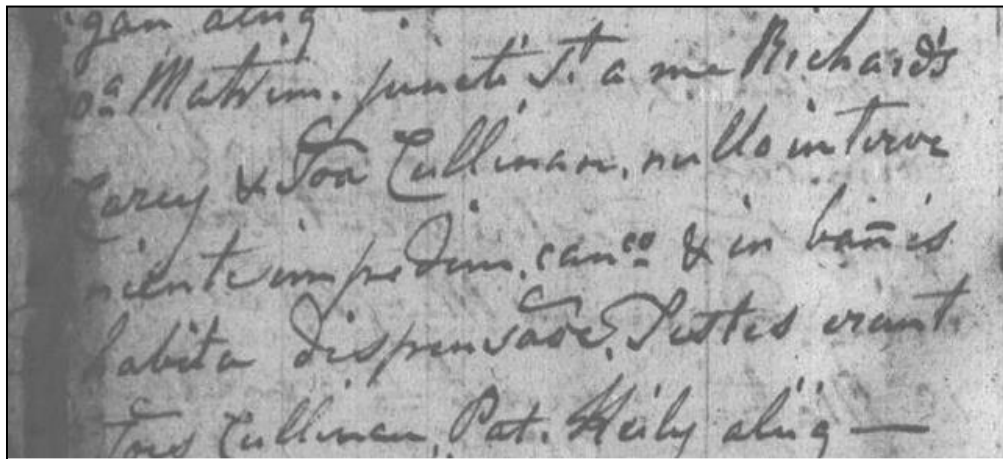 gan aliiq —
10a Matrim. juncti st a me Richards
Carey & Joa Cullinan, nullo interve
niente impedim. canco & in bañis
habita dispensaõe, Testes erant
Cullinan, Pat. Heily aliiq —